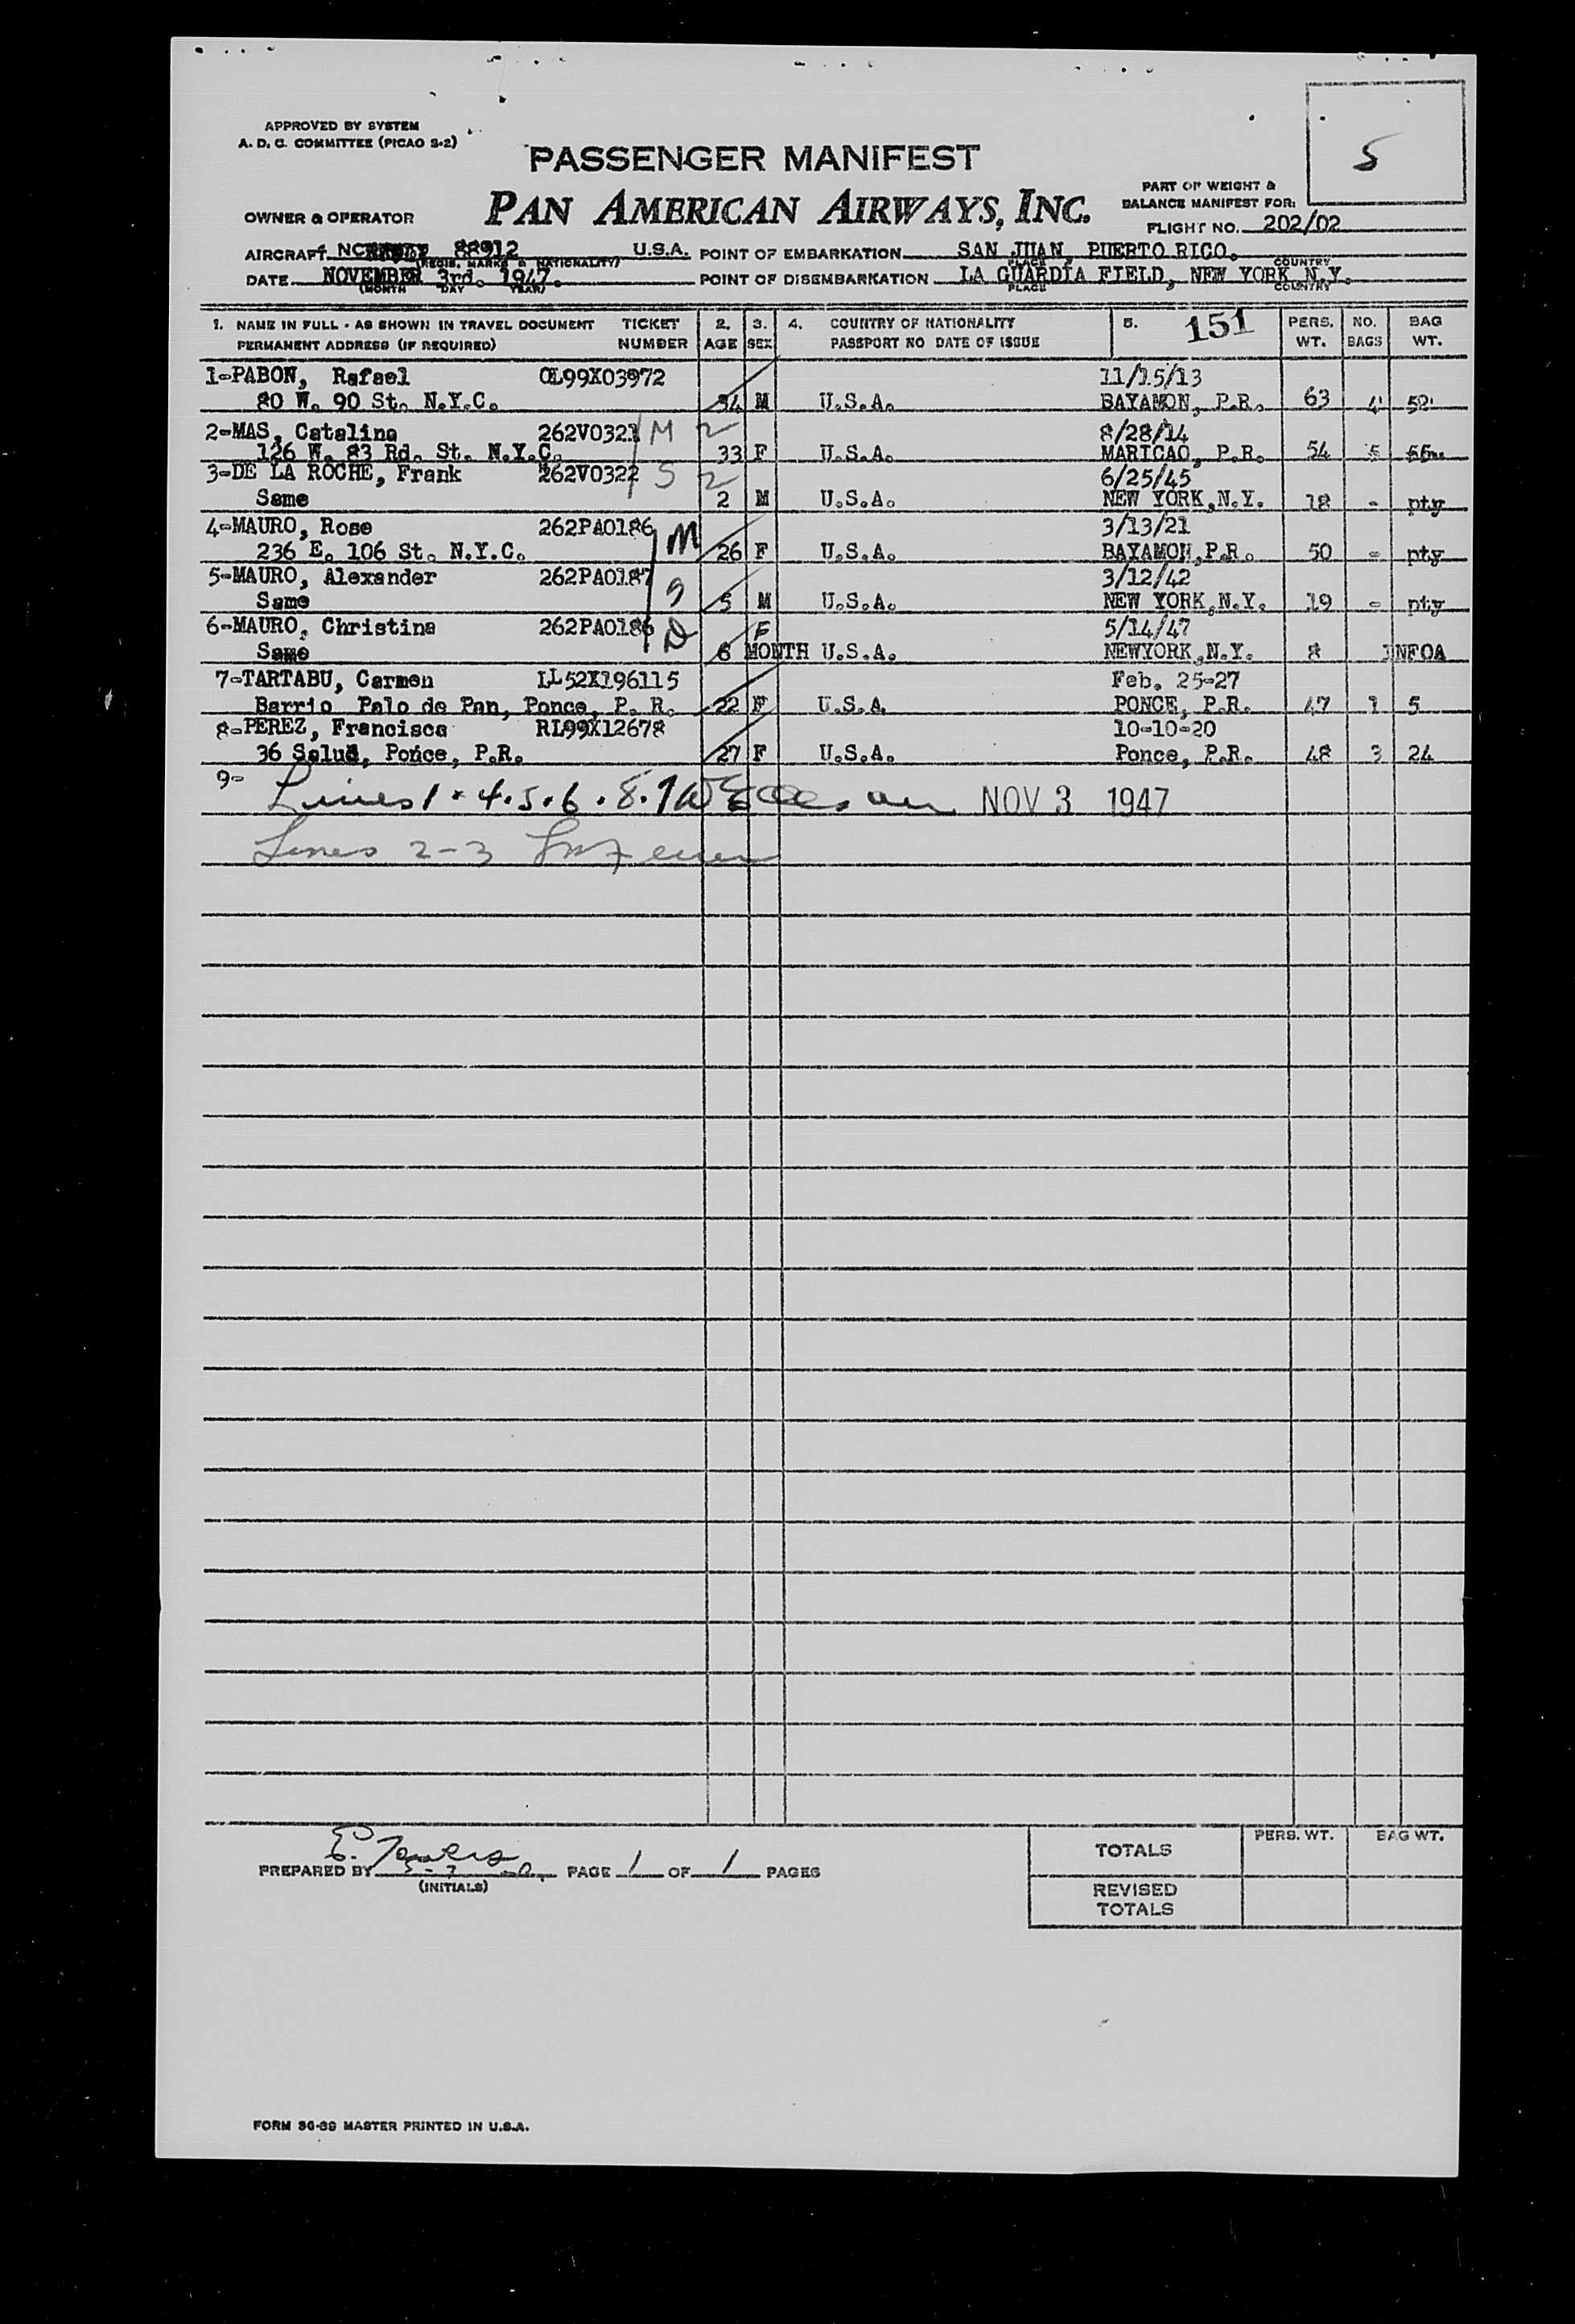 S
APPROVED BY SYSTEM
A. D. C. COMMITTEE (PICAO S-2)
PASSENGER MANIFEST
PAN AMERICAN AIRWAYS, INC.
PART OF WEIGHT &
BALANCE MANIFEST FOR:
OWNER & OPERATOR
FLIGHT NO. 202/02
AIRCRAFT NC 88912 U.S.A. POINT OF EMBARKATION SAN JUAN, PUERTO RICO.
(REGIS. MARKS & NATIONALITY) PLACE COUNTRY
DATE NOVEMBER 3rd. 1947. POINT OF DISEMBARKATION LA GUARDIA FIELD, NEW YORK N.Y.
(MONTH DAY YEAR) PLACE COUNTRY
1. NAME IN FULL - AS SHOWN IN TRAVEL DOCUMENT TICKET 2. 3. 4. COUNTRY OF NATIONALITY 5. 151 PERS. NO. BAG
PERMANENT ADDRESS (IF REQUIRED) NUMBER AGE SEX PASSPORT NO DATE OF ISSUE WT. BAGS WT.
1-PABON, Rafael OL99X03972 11/15/13
80 W. 90 St. N.Y.C. 34 M U.S.A. BAYAMON, P.R. 63 4 52
2-MAS, Catalina 262V0321 M 2 8/28/14
126 W. 83 Rd. St. N.Y.C. 33 F U.S.A. MARICAO, P.R. 54 5
3-DE LA ROCHE, Frank 262V0322 S 2 6/25/45
Same 2 M U.S.A. NEW YORK,N.Y. 18 - pty
4-MAURO, Rose 262PA0186 M 3/13/21
236 E. 106 St. N.Y.C. 26 F U.S.A. BAYAMON,P.R. 50 - pty
5-MAURO, Alexander 262PA0187 S 3/12/42
Same 5 M U.S.A. NEW YORK,N.Y. 19 - pty
6-MAURO, Christina 262PA0186 D F 5/14/47
Same 6 MONTH U.S.A. NEWYORK,N.Y. 8 INFOA
7-TARTABU, Carmen LL52X196115 Feb. 25-27
Barrio Palo de Pan, Ponce, P. R. 22 F U.S.A. PONCE, P.R. 47 1 5
8-PEREZ, Francisca RL99X12678 10-10-20
36 Salud, Ponce, P.R. 27 F U.S.A. Ponce, P.R. 48 3 24
9-
Lines 1 . 4 . 5 . 6 . 8 . 7 NOV 3 1947
Lines 2-3
PREPARED BY PAGE 1 OF 1 PAGES
(INITIALS)
PERS. WT. BAG WT.
TOTALS
REVISED
TOTALS
FORM 36-39 MASTER PRINTED IN U.S.A.